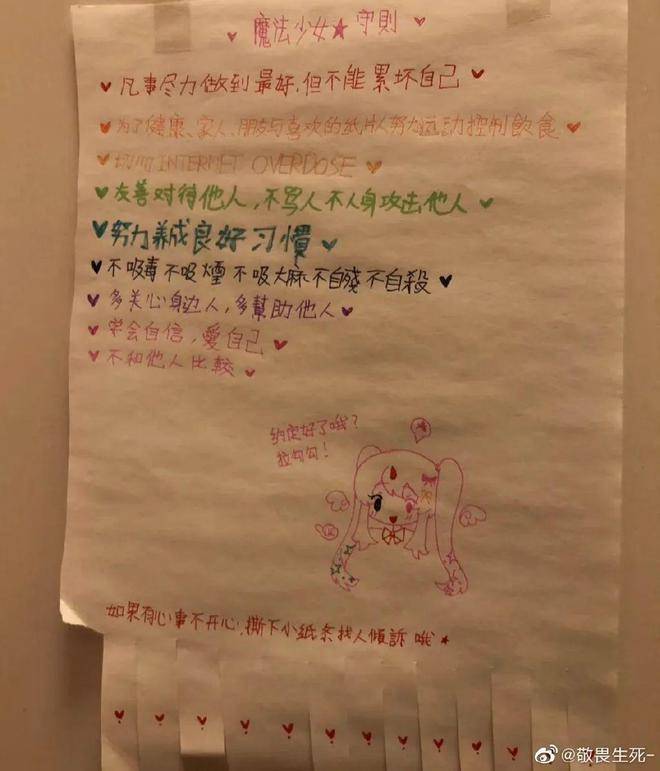 魔法少女★守則
凡事尽力做到最好,但不能累坏自己
为了健康、家人、朋友与喜欢的纸片人努力运动控制飲食
切勿INTERNET OVERDOSE
友善对待他人,不骂人不人身攻击他人
努力养成良好习慣
不吸毒不吸煙不吸大麻不自殘不自殺
多关心身边人,多幫助他人
学会自信,愛自己
不和他人比較
约定好了哦?
拉勾勾!
如果有心事不开心,撕下小纸条找人傾訴哦★
@敬畏生死-